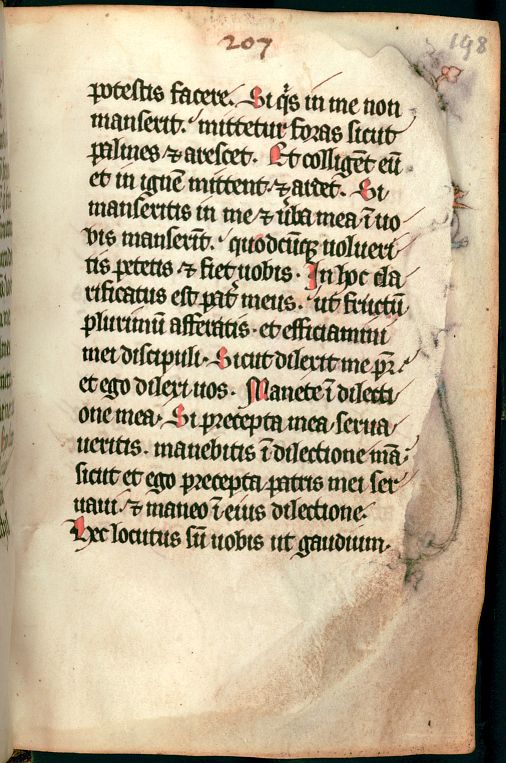 207
198
potestis facere. Si q̇s in me non
manserit. mittetur foras sicut
palmes ⁊ arescet. Et colligēt eū
et in ignē mittent ⁊ ardet. Si
manseritis in me ⁊ ūba mea ī uo
bis manserīt. quodcūqꝫ uolueri
tis petetis ⁊ fiet uobis. In hoc cla
rificatus est pat̄ meus. ut fructū
plurimū afferatis. et efficiamini
mei discipuli. Sicut dilexit me pr̄.
et ego dilexi uos. Manete ī dilecti
one mea. Si precepta mea serua
ueritis. manebitis ī dilectione mā.
sicut et ego precepta patris mei ser
uaui. ⁊ maneo ī eius dilectione.
Hec locutus sū uobis ut gaudium.